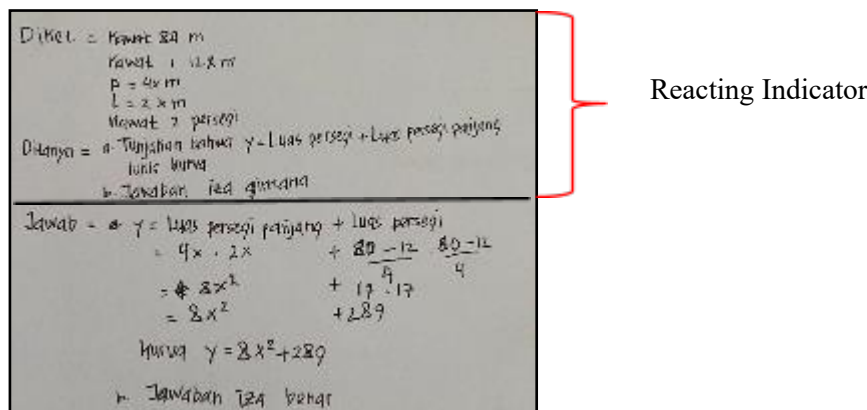 Diket = Kawat 80 m
Kawat 1 12x m
p = 4x m
l = 2x m
Kawat 2 persegi
Ditanya = a. Tunjukan bahwa y = Luas persegi + Luas persegi panjang
lukis kurva
b. Jawaban iza gimana
Reacting Indicator
Jawab = a y = Luas persegi panjang + Luas persegi
= 4x . 2x + 80 - 12 80 - 12
4 4
= 8x² + 17 . 17
= 8x² + 289
Kurva y = 8x² + 289
b. Jawaban iza benar